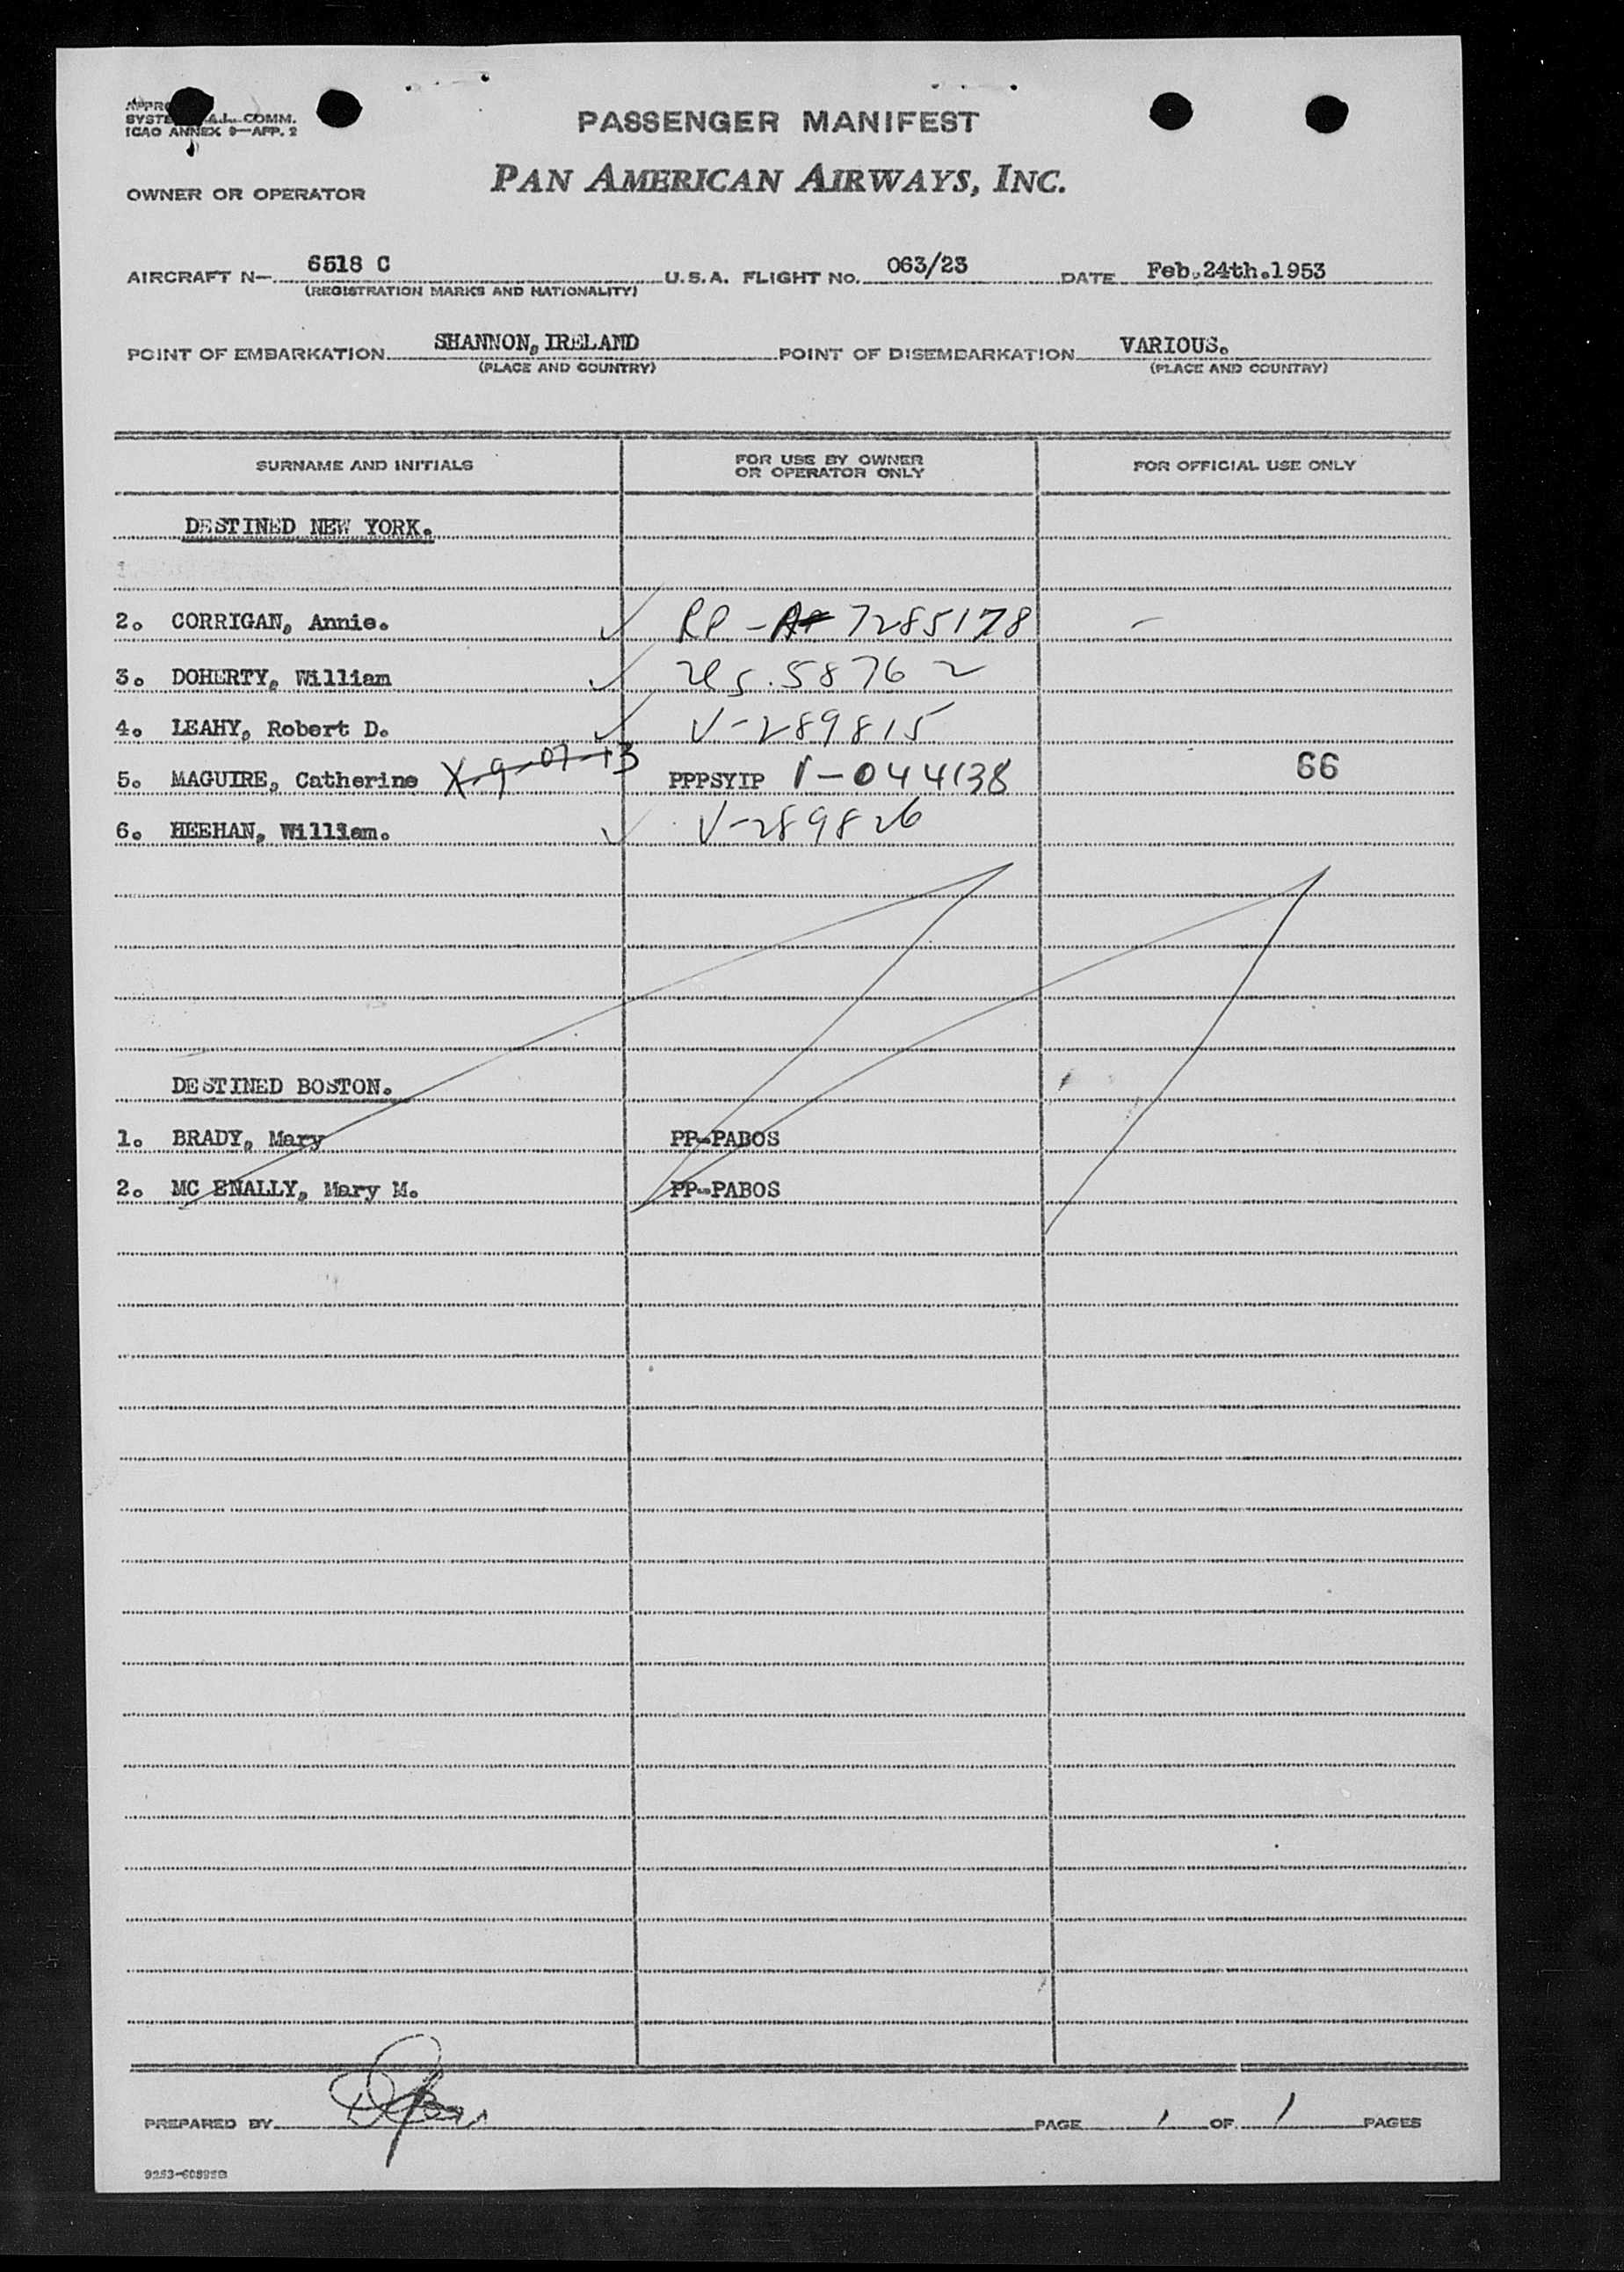 PASSENGER MANIFEST
SYSTE A.L. COMM.
ICAO ANNEX 9—APP. 2
PAN AMERICAN AIRWAYS, INC.
OWNER OR OPERATOR
AIRCRAFT N— 6518 C U.S.A. FLIGHT NO. 063/23 DATE Feb.24th.1953
(REGISTRATION MARKS AND NATIONALITY)
POINT OF EMBARKATION SHANNON, IRELAND POINT OF DISEMBARKATION VARIOUS.
(PLACE AND COUNTRY) (PLACE AND COUNTRY)
SURNAME AND INITIALS FOR USE BY OWNER OR OPERATOR ONLY FOR OFFICIAL USE ONLY
DESTINED NEW YORK.
1
2. CORRIGAN, Annie. ✓ RP - 7285178 –
3. DOHERTY, William ✓ US. 58762
4. LEAHY, Robert D. ✓ V-289815
5. MAGUIRE, Catherine X-9-07-13 PPPSYIP V-044138 66
6. HEEHAN, William. ✓ V-289826
DESTINED BOSTON.
1. BRADY, Mary PP-PABOS
2. MC ENALLY, Mary M. PP-PABOS
PREPARED BY PAGE 1 OF 1 PAGES